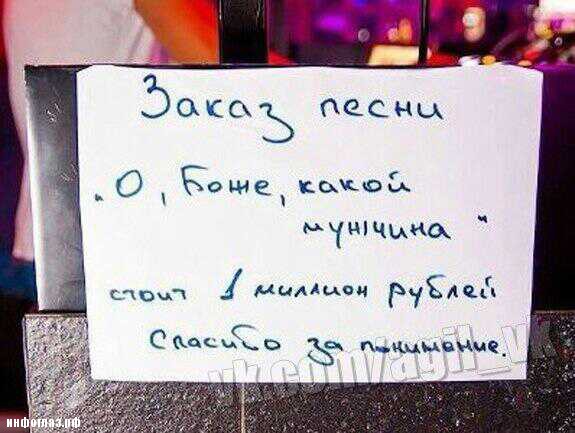 Заказ песни
„О, Боже, какой
мужчина"
стоит 1 миллион рублей
Спасибо за понимание.
vk.com/agil_vk
инфоглаз.рф